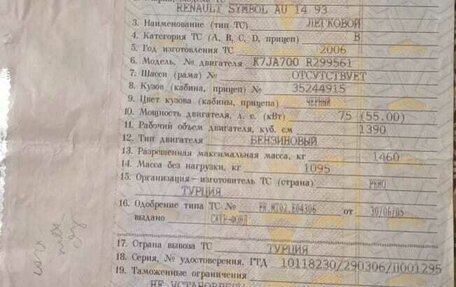 RENAULT SYMBOL AU 14 93
3. Наименование (тип ТС) ЛЕГКОВОЙ
4. Категория ТС (A, B, C, D, прицеп) B
5. Год изготовления ТС 2006
6. Модель, № двигателя K7JA700 R299561
7. Шасси (рама) № ОТСУТСТВУЕТ
8. Кузов (кабина, прицеп) № 35244915
9. Цвет кузова (кабины, прицепа) ЧЕРНЫЙ
10. Мощность двигателя, л. с. (кВт) 75 (55.00)
11. Рабочий объем двигателя, куб. см 1390
12. Тип двигателя БЕНЗИНОВЫЙ
13. Разрешенная максимальная масса, кг 1460
14. Масса без нагрузки, кг 1095
15. Организация-изготовитель ТС (страна) РЕНО
ТУРЦИЯ
16. Одобрение типа ТС № FR.MT02.E04306 от 30/06/05
выдано САТР-ФОНД
17. Страна вывоза ТС ТУРЦИЯ
18. Серия, № удостоверения, ГТД 10118230/290306/П001295
19. Таможенные ограничения
НЕ УСТАНОВЛЕНЫ